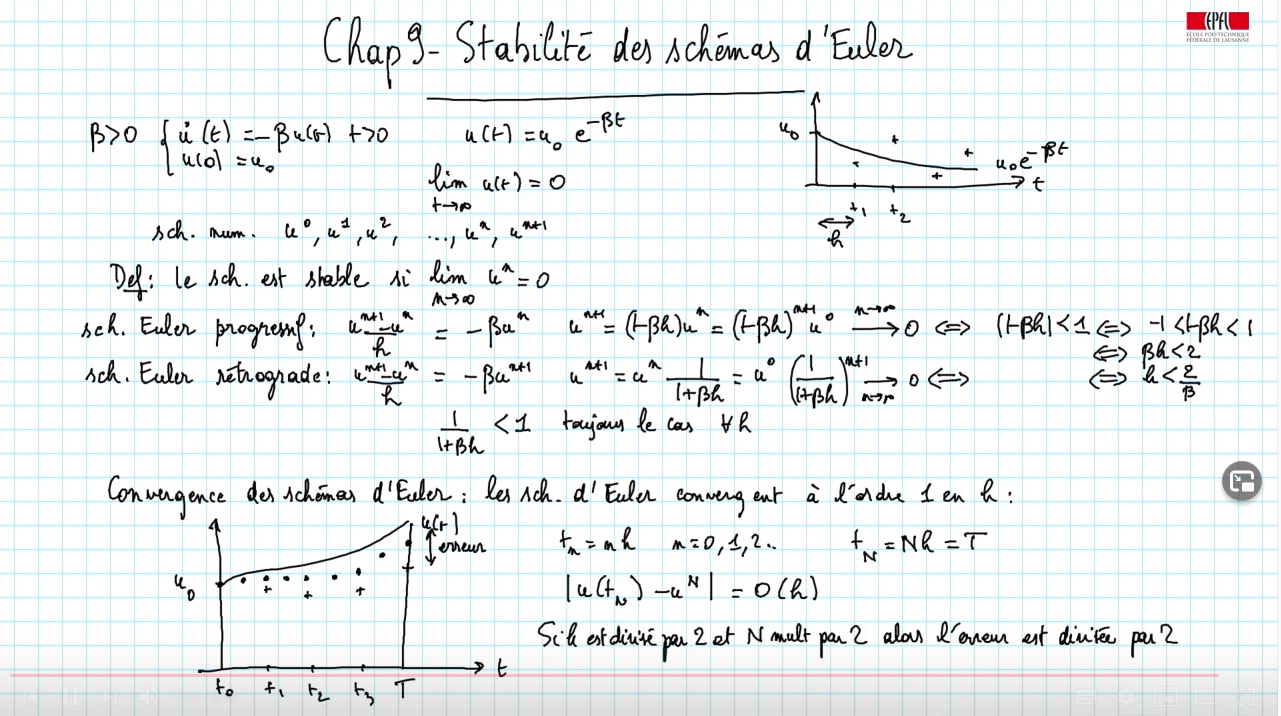 Chap 9 - Stabilité des schémas d'Euler
EPFL
ÉCOLE POLYTECHNIQUE
FÉDÉRALE DE LAUSANNE
β>0 { u̇(t) = -βu(t) t>0 u(t) = u₀ e^{-βt}
u(0) = u₀
lim u(t) = 0
t→∞
u₀
u₀e^{-βt}
t
t₁ t₂
h
sch. num. u⁰, u¹, u², ..., uⁿ, uⁿ⁺¹
Def: le sch. est stable si lim uⁿ = 0
n→∞
sch. Euler progressif: (uⁿ⁺¹-uⁿ)/h = -βuⁿ uⁿ⁺¹ = (1-βh)uⁿ = (1-βh)ⁿ⁺¹u⁰ →(n→∞) 0 ⇔ |1-βh|<1 ⇔ -1<1-βh<1
⇔ βh<2
sch. Euler rétrograde: (uⁿ⁺¹-uⁿ)/h = -βuⁿ⁺¹ uⁿ⁺¹ = uⁿ 1/(1+βh) = u⁰ (1/(1+βh))ⁿ⁺¹ →(n→∞) 0 ⇔ ⇔ h<2/β
1/(1+βh) < 1 toujours le cas ∀h
Convergence des schémas d'Euler: les sch. d'Euler convergent à l'ordre 1 en h:
u(t)
erreur
u₀
t
t₀ t₁ t₂ t₃ T
tₙ = nh n=0,1,2.. t_N = Nh = T
|u(t_N) - u^N| = O(h)
Si h est divisé par 2 et N mult par 2 alors l'erreur est divisée par 2